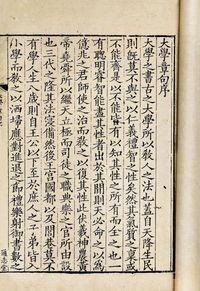 大學章句序
大學之書古之大學所以教人之法也蓋自天降生民
則既莫不與之以仁義禮智之性矣然其氣質之稟或
不能齊是以不能皆有以知其性之所有而全之也一
有聰明睿智能盡其性者出於其間則天必命之以為
億兆之君師使之治而教之以復其性此伏羲神農黃
帝堯舜所以繼天立極而司徒之職典樂之官所由設
也三代之隆其法寖備然後王宮國都以及閭巷莫不
有學人生八歲則自王公以下至於庶人之子弟皆入
小學而教之以灑掃應對進退之節禮樂射御書數之
通志堂